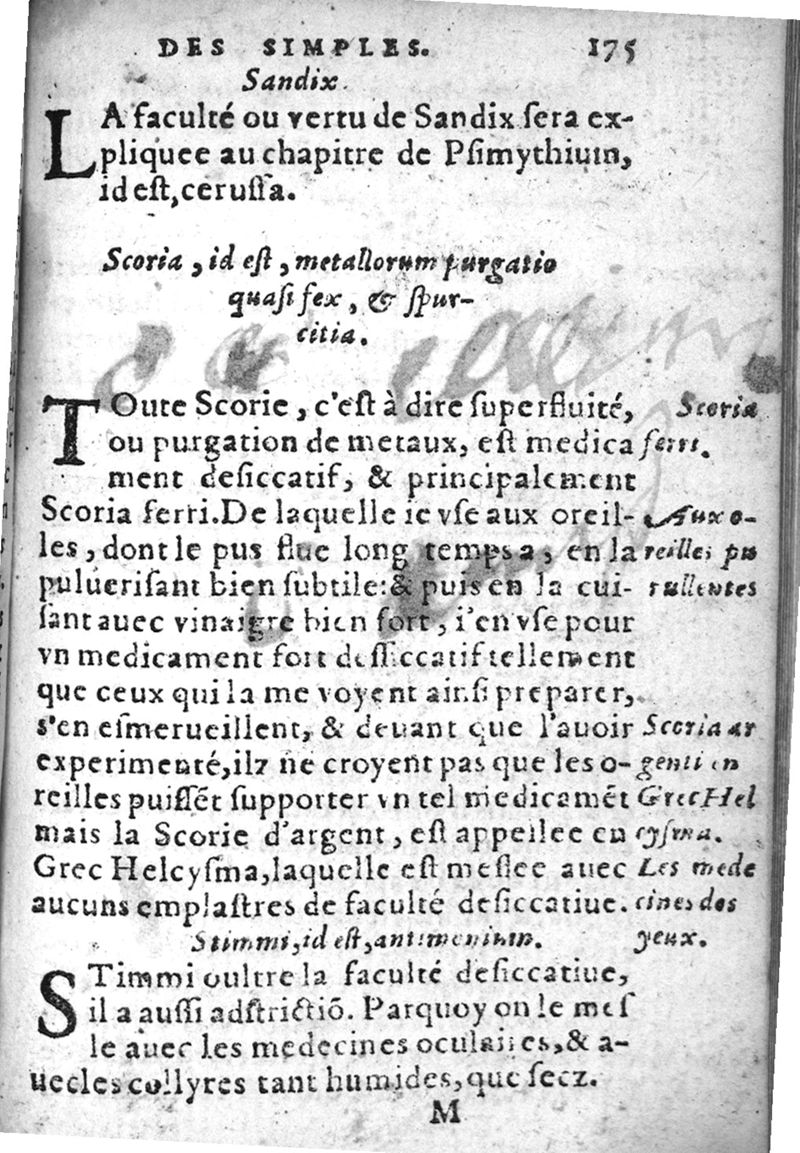 DES SIMPLES. 175
Sandix.
LA faculté ou vertu de Sandix ſera ex-
pliquee au chapitre de Pſimythium,
id eſt, ceruſſa.
Scoria, id eſt, metallorum purgatio
quaſi fex, & ſpur-
citia.
TOute Scorie, c'eſt à dire ſuperfluité,
ou purgation de metaux, eſt medica
ment deſiccatif, & principalement
Scoria ferri. De laquelle ie vſe aux oreil-
les, dont le pus flue long temps a, en la
pulueriſant bien ſubtile: & puis en la cui-
ſant auec vinaigre bien fort, i'en vſe pour
vn medicament fort deſſiccatif tellement
que ceux qui la me voyent ainſi preparer,
s'en eſmerueillent, & deuant que l'auoir
experimenté, ilz ne croyent pas que les o-
reilles puiſſēt ſupporter vn tel medicamēt
mais la Scorie d'argent, eſt appellee en
Grec Helcyſma, laquelle eſt meſlee auec
aucuns emplaſtres de faculté deſiccatiue.
Scoria
ferri.
Aux o-
reilles pu
rullentes
Scoria ar
genti en
Grec Hel
cyſma.
Les mede
cines des
yeux.
Stimmi, id eſt, antimonium.
STimmi oultre la faculté deſiccatiue,
il a auſſi adſtrictiō. Parquoy on le meſ
le auec les medecines oculaires, & a-
uec les collyres tant humides, que ſecz.
M